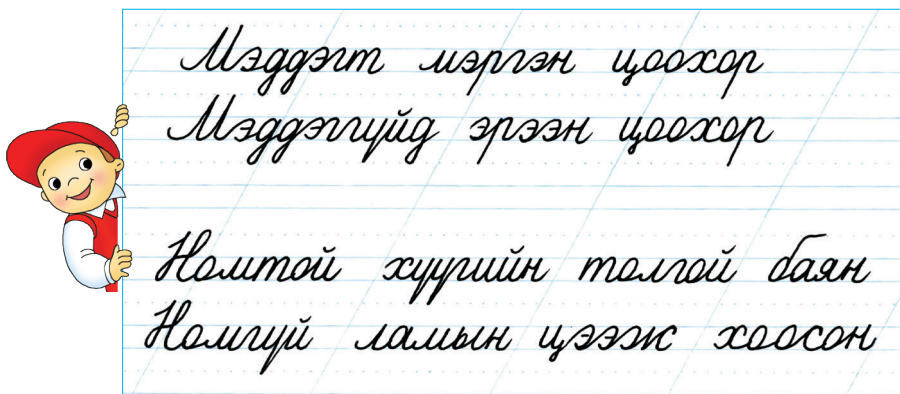 Мэддэгт мэргэн цоохор
Мэддэггүйд эрээн цоохор
Номтой хүүгийн толгой баян
Номгүй ламын цээж хоосон